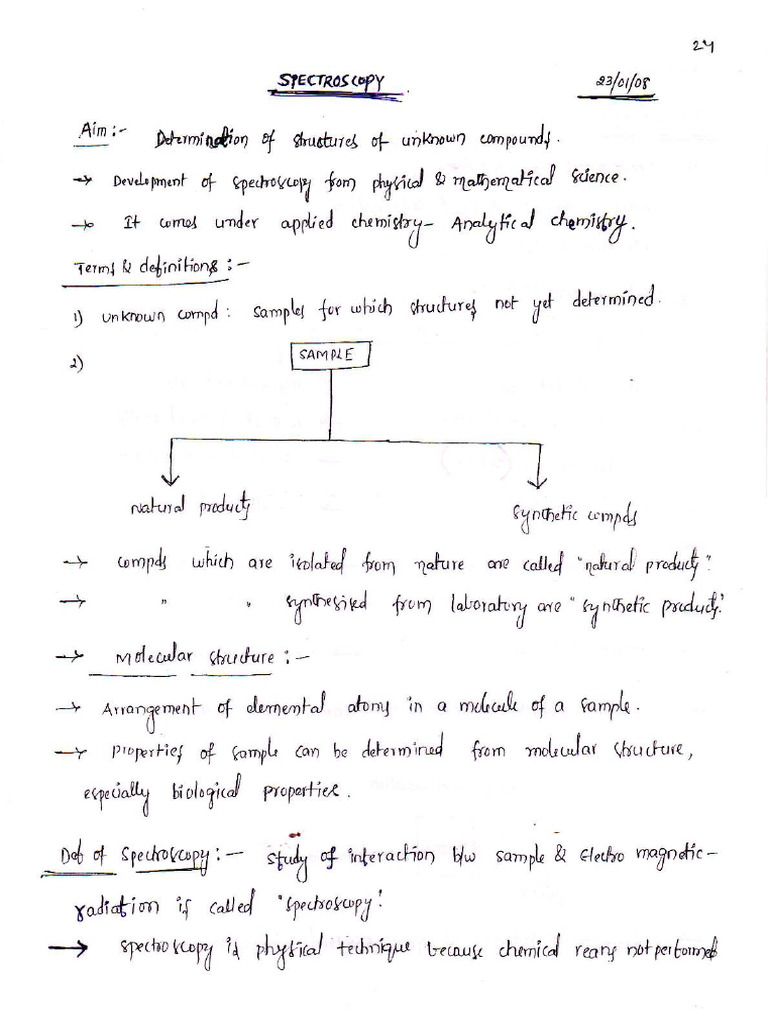 24
SPECTROSCOPY 23/01/08
Aim:- Determination of structures of unknown compounds.
→ Development of spectroscopy from physical & mathematical science.
→ It comes under applied chemistry - Analytical chemistry.
Terms & definitions:-
1) unknown compd: samples for which structures not yet determined.
2) SAMPLE
Natural products synthetic compds
→ compds which are isolated from nature are called "natural products".
→ " " synthesised from laboratory are "synthetic products".
→ Molecular structure:-
→ Arrangement of elemental atoms in a molecule of a sample.
→ properties of sample can be determined from molecular structure,
especially biological properties.
Def of spectroscopy:- study of interaction b/w sample & Electro magnetic-
radiation is called "spectroscopy".
→ spectroscopy is physical technique because chemical reans not performed